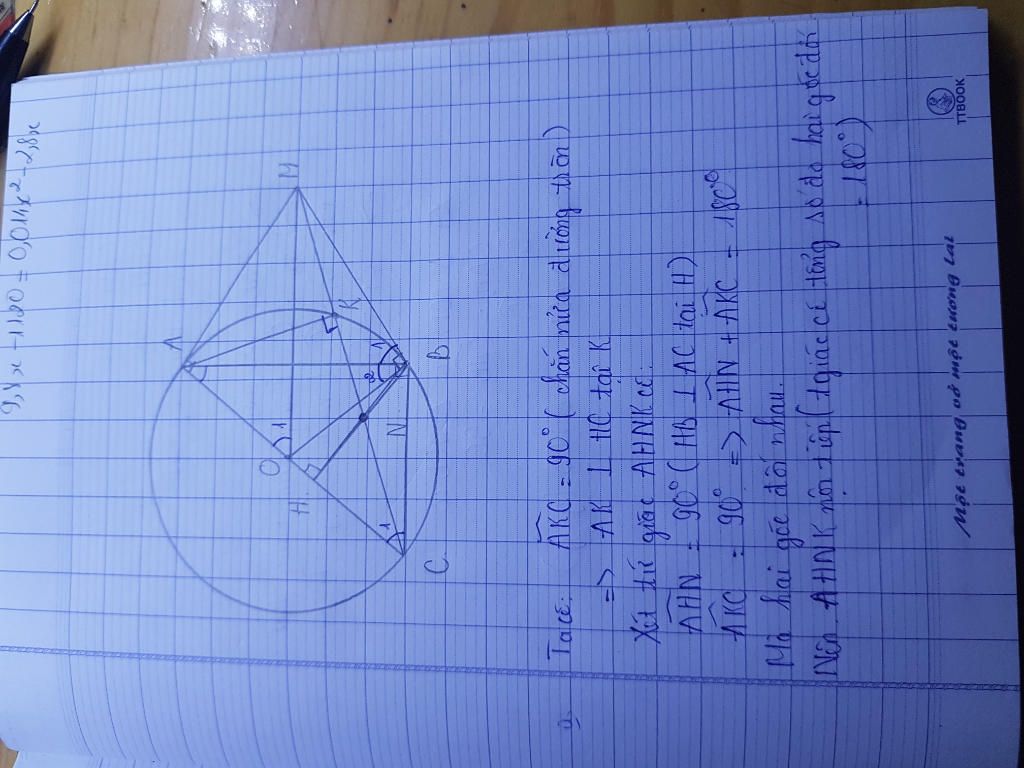 9,8x + 1120 = 0,014x² - 2,8x
A
M
O
1
K
H
2
1
N
B
1
C
a. Ta có: AKC = 90° (chắn nửa đường tròn)
=> AK ⊥ HC tại K
Xét tứ giác AHNK có:
AHN = 90° (HB ⊥ AC tại H)
AKC = 90° => AHN + AKC = 180°
Mà hai góc đối nhau.
Nên AHNK nội tiếp (tgiác có tổng số đo hai góc đối
= 180°)
Một trang vở một tương lai
TTBOOK